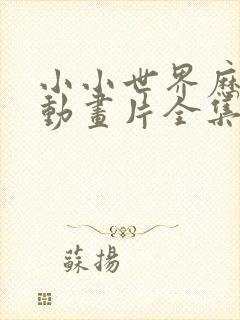 小小世界历
動畫片全集
蘇揚